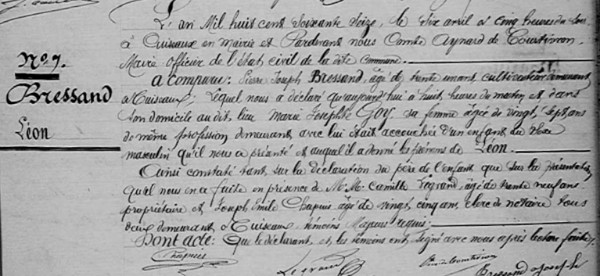 L'an Mil huit cent Soixante Seize, le Six avril à Cinq heures du Soir
à Cuiseaux en Mairie et Pardevant nous Comte Aynard de
Maire Officier de l'Etat Civil de la dite Commune
No. 7.
Bressand
Léon
a Comparu: Pierre Joseph Bressand, agé de trente un ans, Cultivateur demeurant
à Cuiseaux; Lequel nous a déclaré qu'aujourd'hui à huit heures du matin et dans
son domicile au dit lieu Marie Josephte Goy sa femme agée de vingt Sept ans
de même profession demeurant avec lui était accouchée d'un enfant du Sexe
masculin qu'il nous a présenté et auquel il a donné les prénoms de Léon.
Ainsi constaté tant sur la déclaration du père de l'enfant que sur la Présentation
qu'il nous en a faite en présence de M. M. Camille Legrand, agé de trente neuf ans
propriétaire et Joseph Emile Chapuis agé de vingt cinq ans, clerc de notaire tous
deux demeurant à Cuiseaux témoins requis:
Dont acte: Que le déclarant et les témoins ont Signé avec nous après lecture faite
Chapuis
Legrand
Bressand Joseph